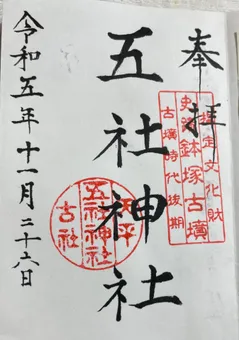 奉拝
指定文化財
史跡鉢塚古墳
古墳時代後期
五社神社
五社神社
古社
令和五年十一月二十六日